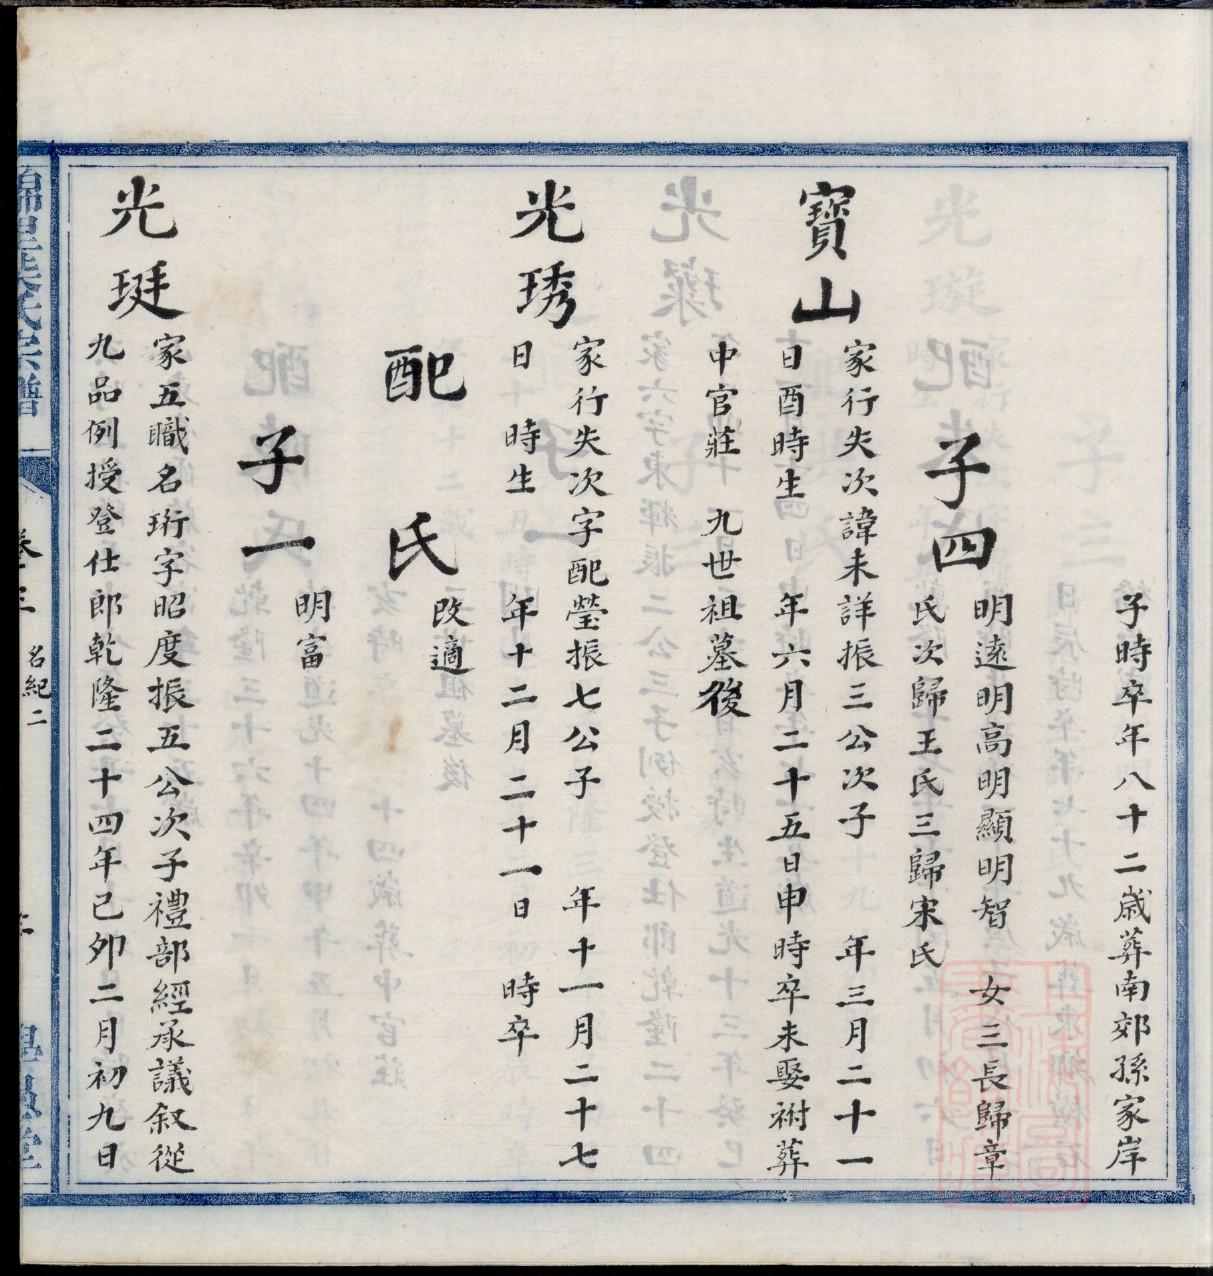 子時卒年八十二歲葬南郊孫家岸
子四
明遠明高明顯明智 女三長歸章
氏次歸王氏三歸宋氏
寶山
家行失次諱未詳振三公次子 年三月二十一
日酉時生 年六月二十五日申時卒未娶祔葬
中官莊 九世祖墓後
光琇
家行失次字配瑩振七公子 年十一月二十七
日 時生 年十二月二十一日 時卒
配 氏
改適
子一
明富
光珽
家五職名珩字昭度振五公次子禮部經承議叙從
九品例授登仕郎乾隆二十四年己卯二月初九日
氏宗譜
卷三
名紀二